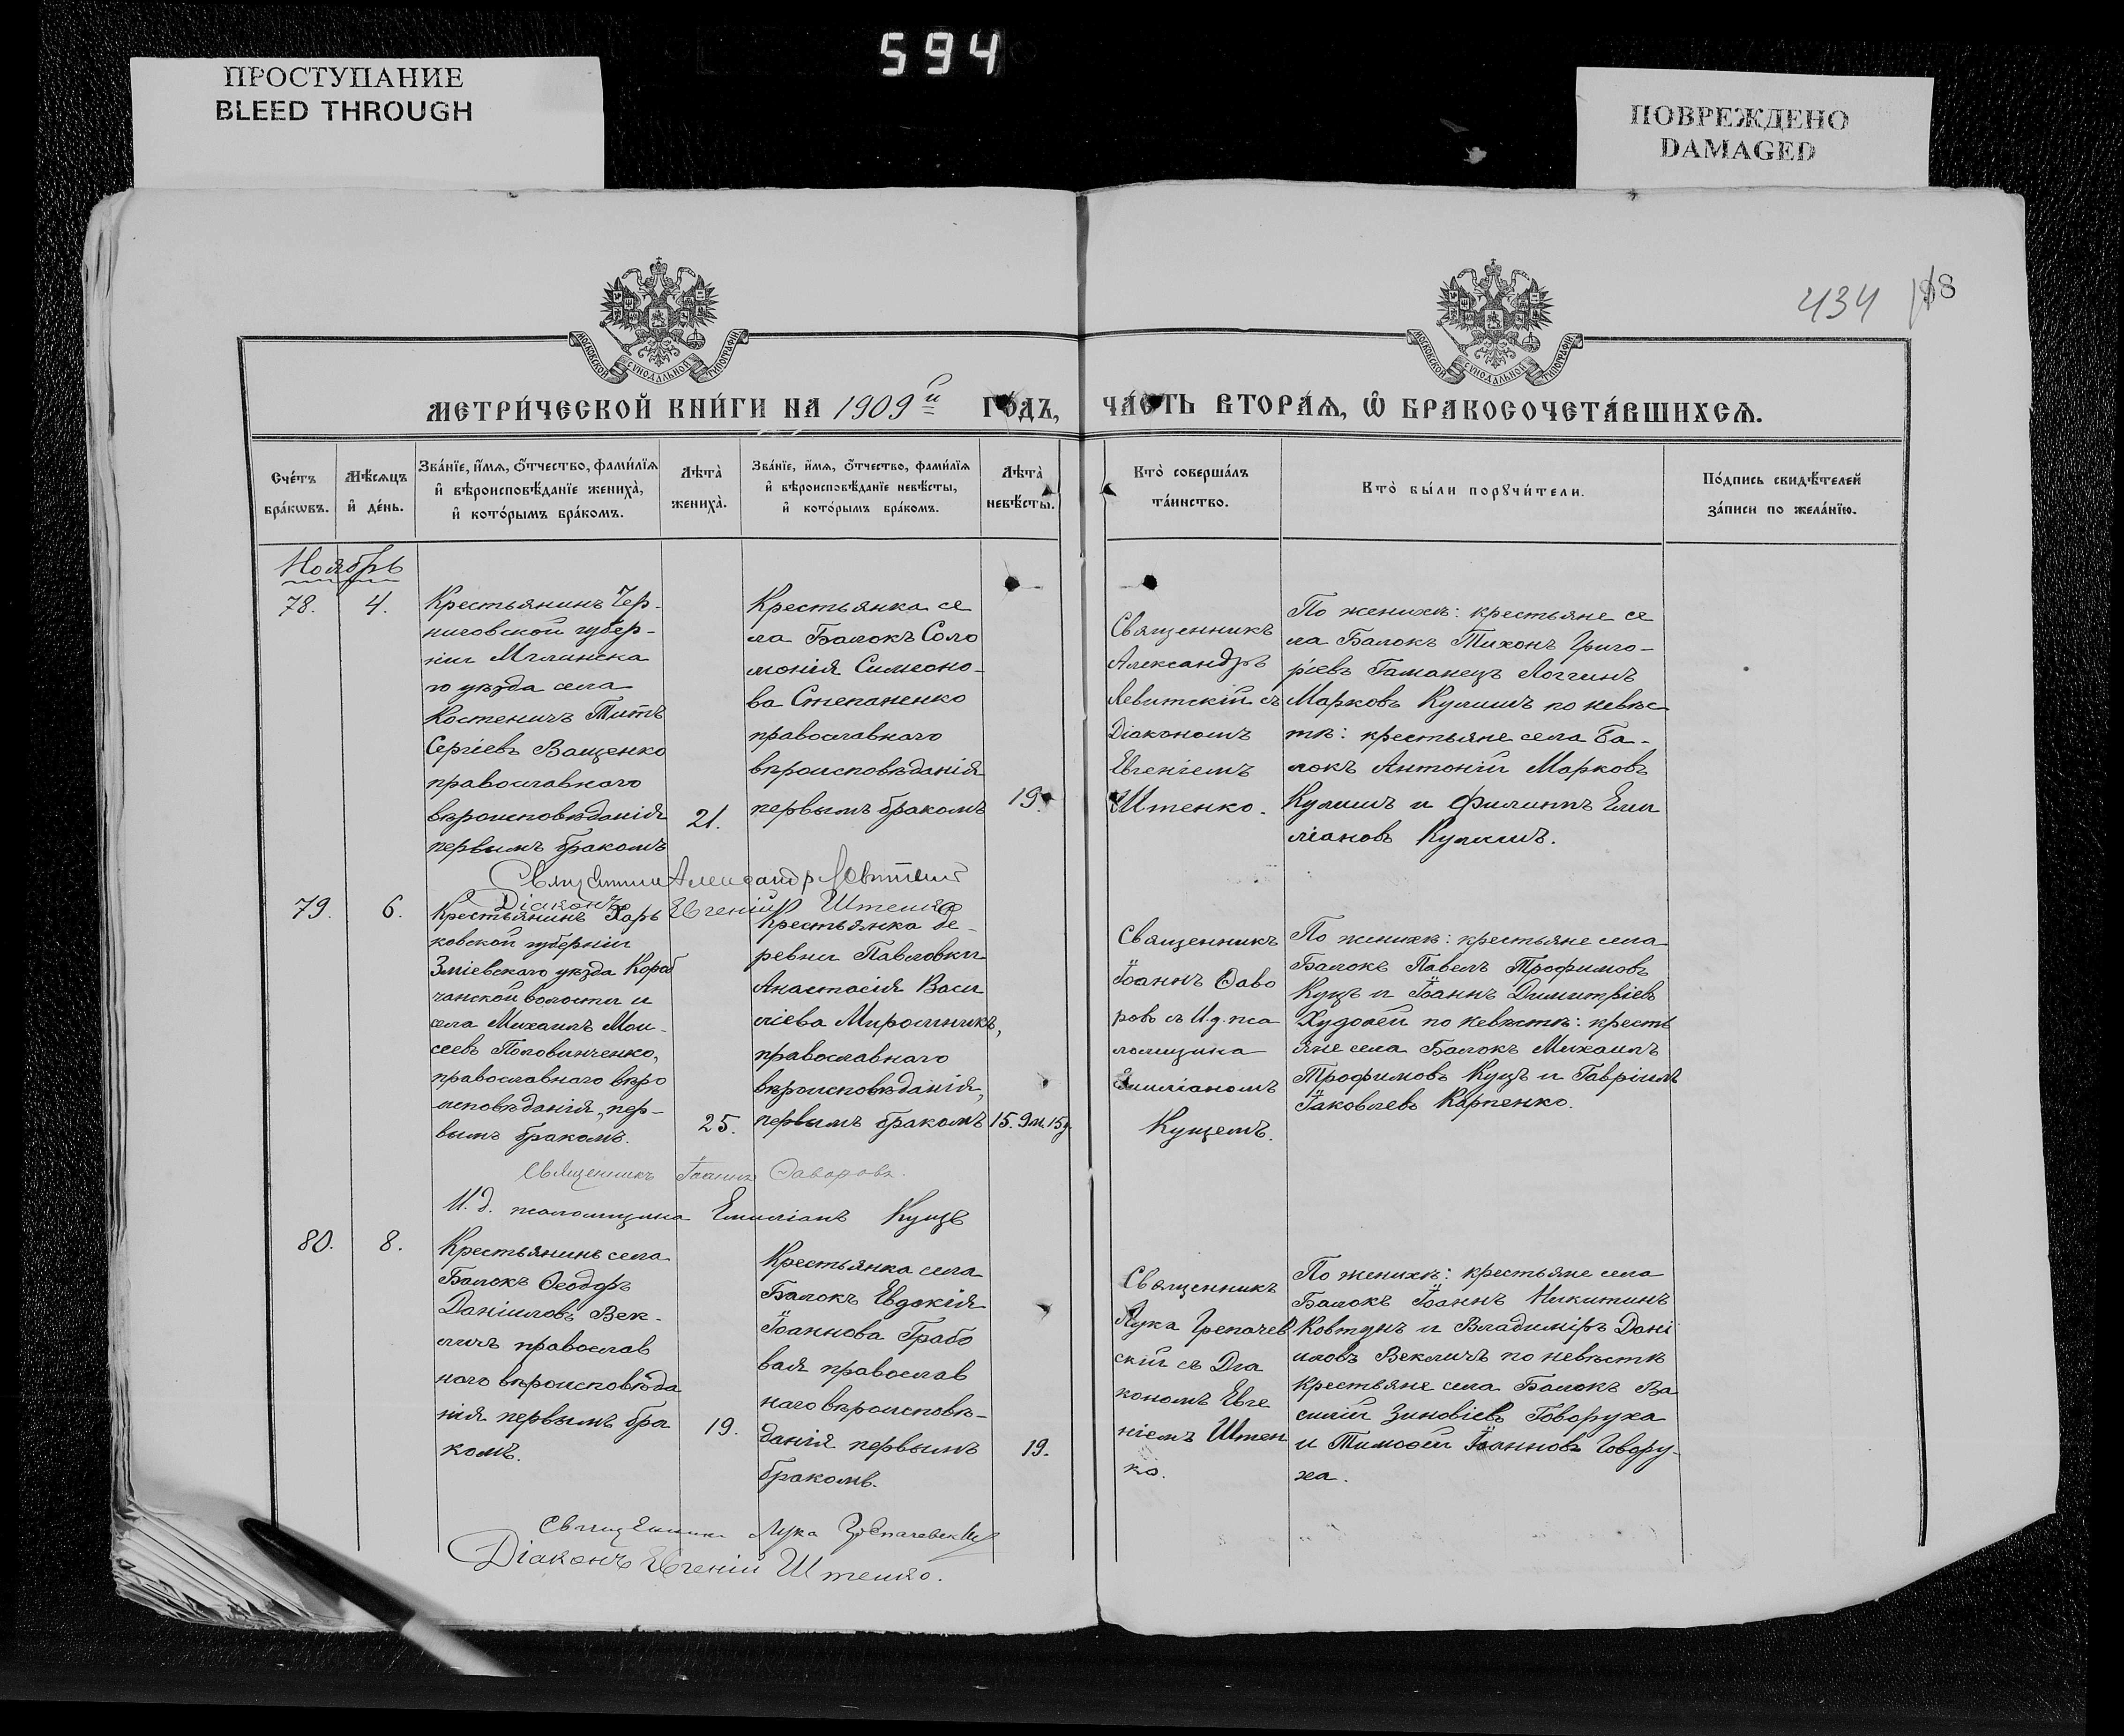 594
ПРОСТУПАНИЕ
BLEED THROUGH
ПОВРЕЖДЕНО
DAMAGED
434
МОСКОВСКОЙ СѴНОДАЛЬНОЙ ТИПОГРАФІИ
МОСКОВСКОЙ СѴНОДАЛЬНОЙ ТИПОГРАФІИ
МЕТРИ́ЧЕСКОЙ КНИ́ГИ НА 1909й ГО́ДЪ,
ЧА́СТЬ ВТОРА́Ѧ, Ѽ БРАКОСОЧЕТА́ВШИХСѦ.
Сче́тъ
бра́кѡвъ.
Мѣ́сѧцъ
и҆ де́нь.
Зва́нїе, и҆́мѧ, ѻ҆́тчество, фами́лїѧ
и҆ вѣроисповѣ́данїе жениха̀,
и҆ кото́рымъ бра́комъ.
Лѣта̀
жениха̀.
Зва́нїе, и҆́мѧ, ѻ҆́тчество, фами́лїѧ
и҆ вѣроисповѣ́данїе невѣ́сты,
и҆ кото́рымъ бра́комъ.
Лѣта̀
невѣ́сты.
Кто̀ соверша́лъ
та́инство.
Кто̀ бы́ли порꙋчи́тели.
По́дпись свидѣ́телей
за́писи по жела́нїю.
Ноябрь
78.
4.
Крестьянинъ Чер-
ниговской губер-
ніи Мглинска
го уѣзда села
Костеничъ Титъ
Сергіевъ Ващенко
православнаго
вѣроисповѣданія
первымъ бракомъ
21.
Крестьянка се
ла Балокъ Соло
монія Симеоно-
ва Степаненко
православнаго
вѣроисповѣданія
первымъ бракомъ
19.
Священникъ
Александръ
Левитскій съ
Діакономъ
Евгеніемъ
Штенко.
По женихѣ: крестьяне се
ла Балокъ Тихонъ Григо-
ріевъ Гаманецъ Логгинъ
Марковъ Кулишъ по невѣс
тѣ: крестьяне села Ба-
локъ Антоній Марковъ
Кулишъ и Филиппъ Еми
ліановъ Кулишъ.
Священникъ Александръ Левитскій
Діаконъ Евгеній Штенко
79.
6.
Крестьянинъ Харь
ковской губерніи
Зміевскаго уѣзда Короб
чанской волости и
села Михаилъ Мои-
сеевъ Половинченко,
православнаго вѣро
исповѣданія, пер-
вымъ бракомъ.
25.
Крестьянка де-
ревни Павловки
Анастасія Васи
ліева Мирошникъ,
православнаго
вѣроисповѣданія,
первымъ бракомъ
15. 9м. 15д.
Священникъ
Іоаннъ Ѳаво
ровъ съ И.д. пса
ломщика
Емиліаномъ
Куцемъ.
По женихѣ: крестьяне села
Балокъ Павелъ Трофимовъ
Куцъ и Іоаннъ Димитріевъ
Худолѣй по невѣстѣ: кресть
яне села Балокъ Михаилъ
Трофимовъ Куцъ и Гавріилъ
Іаковлевъ Карпенко.
Священникъ Іоаннъ Ѳаворовъ.
И. д. псаломщика Емиліанъ Куцъ
80.
8.
Крестьянинъ села
Балокъ Ѳеодоръ
Даніиловъ Век-
личъ православ
наго вѣроисповѣда
нія первымъ бра
комъ.
19.
Крестьянка села
Балокъ Евдокія
Іоаннова Грабо
вая православ
наго вѣроисповѣ-
данія первымъ
бракомъ.
19.
Священникъ
Лука Грепачев
скій съ Діа
кономъ Евге
ніемъ Штен
ко.
По женихѣ: крестьяне села
Балокъ Іоаннъ Никитинъ
Ковтунъ и Владиміръ Дані
иловъ Векличъ по невѣстѣ
крестьяне села Балокъ Ва
силій Зиновіевъ Говоруха
и Тимоѳей Іоанновъ Говору-
ха.
Священникъ Лука Грепачевскій
Діаконъ Евгеній Штенко.